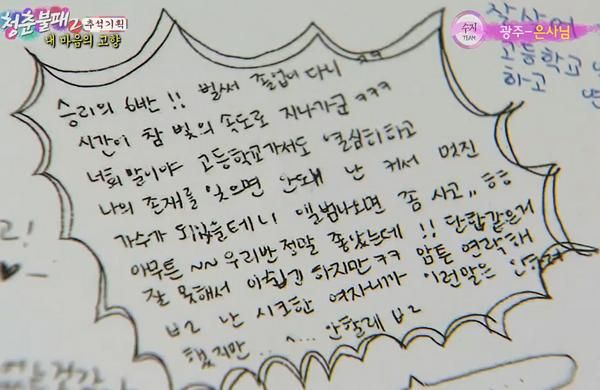 청춘불패2 추석기획
내 마음의 고향
수지
TEAM
광주-은사님
승리의 6반!! 벌써 졸업이 다니 ㅋㅋ
시간이 참 빛의 속도로 지나가군 ㅋㅋㅋ
너희 말이야 고등학교가서도 열심히하고
나의 존재를 잊으면 안돼 난 커서 멋진
가수가 되있을테니 앨범나오면 좀 사고,, ㅎㅎ
아무튼 ~~ 우리반 정말 좋았는데!! 단합같은거
잘 못해서 아쉽긴 하지만ㅋㅋ 암튼 연락해
ㅂ2 난 시크한 여자니까 이런말은 안하려
했지만.... 안할래 ㅂ2
고등학교
하고
고!